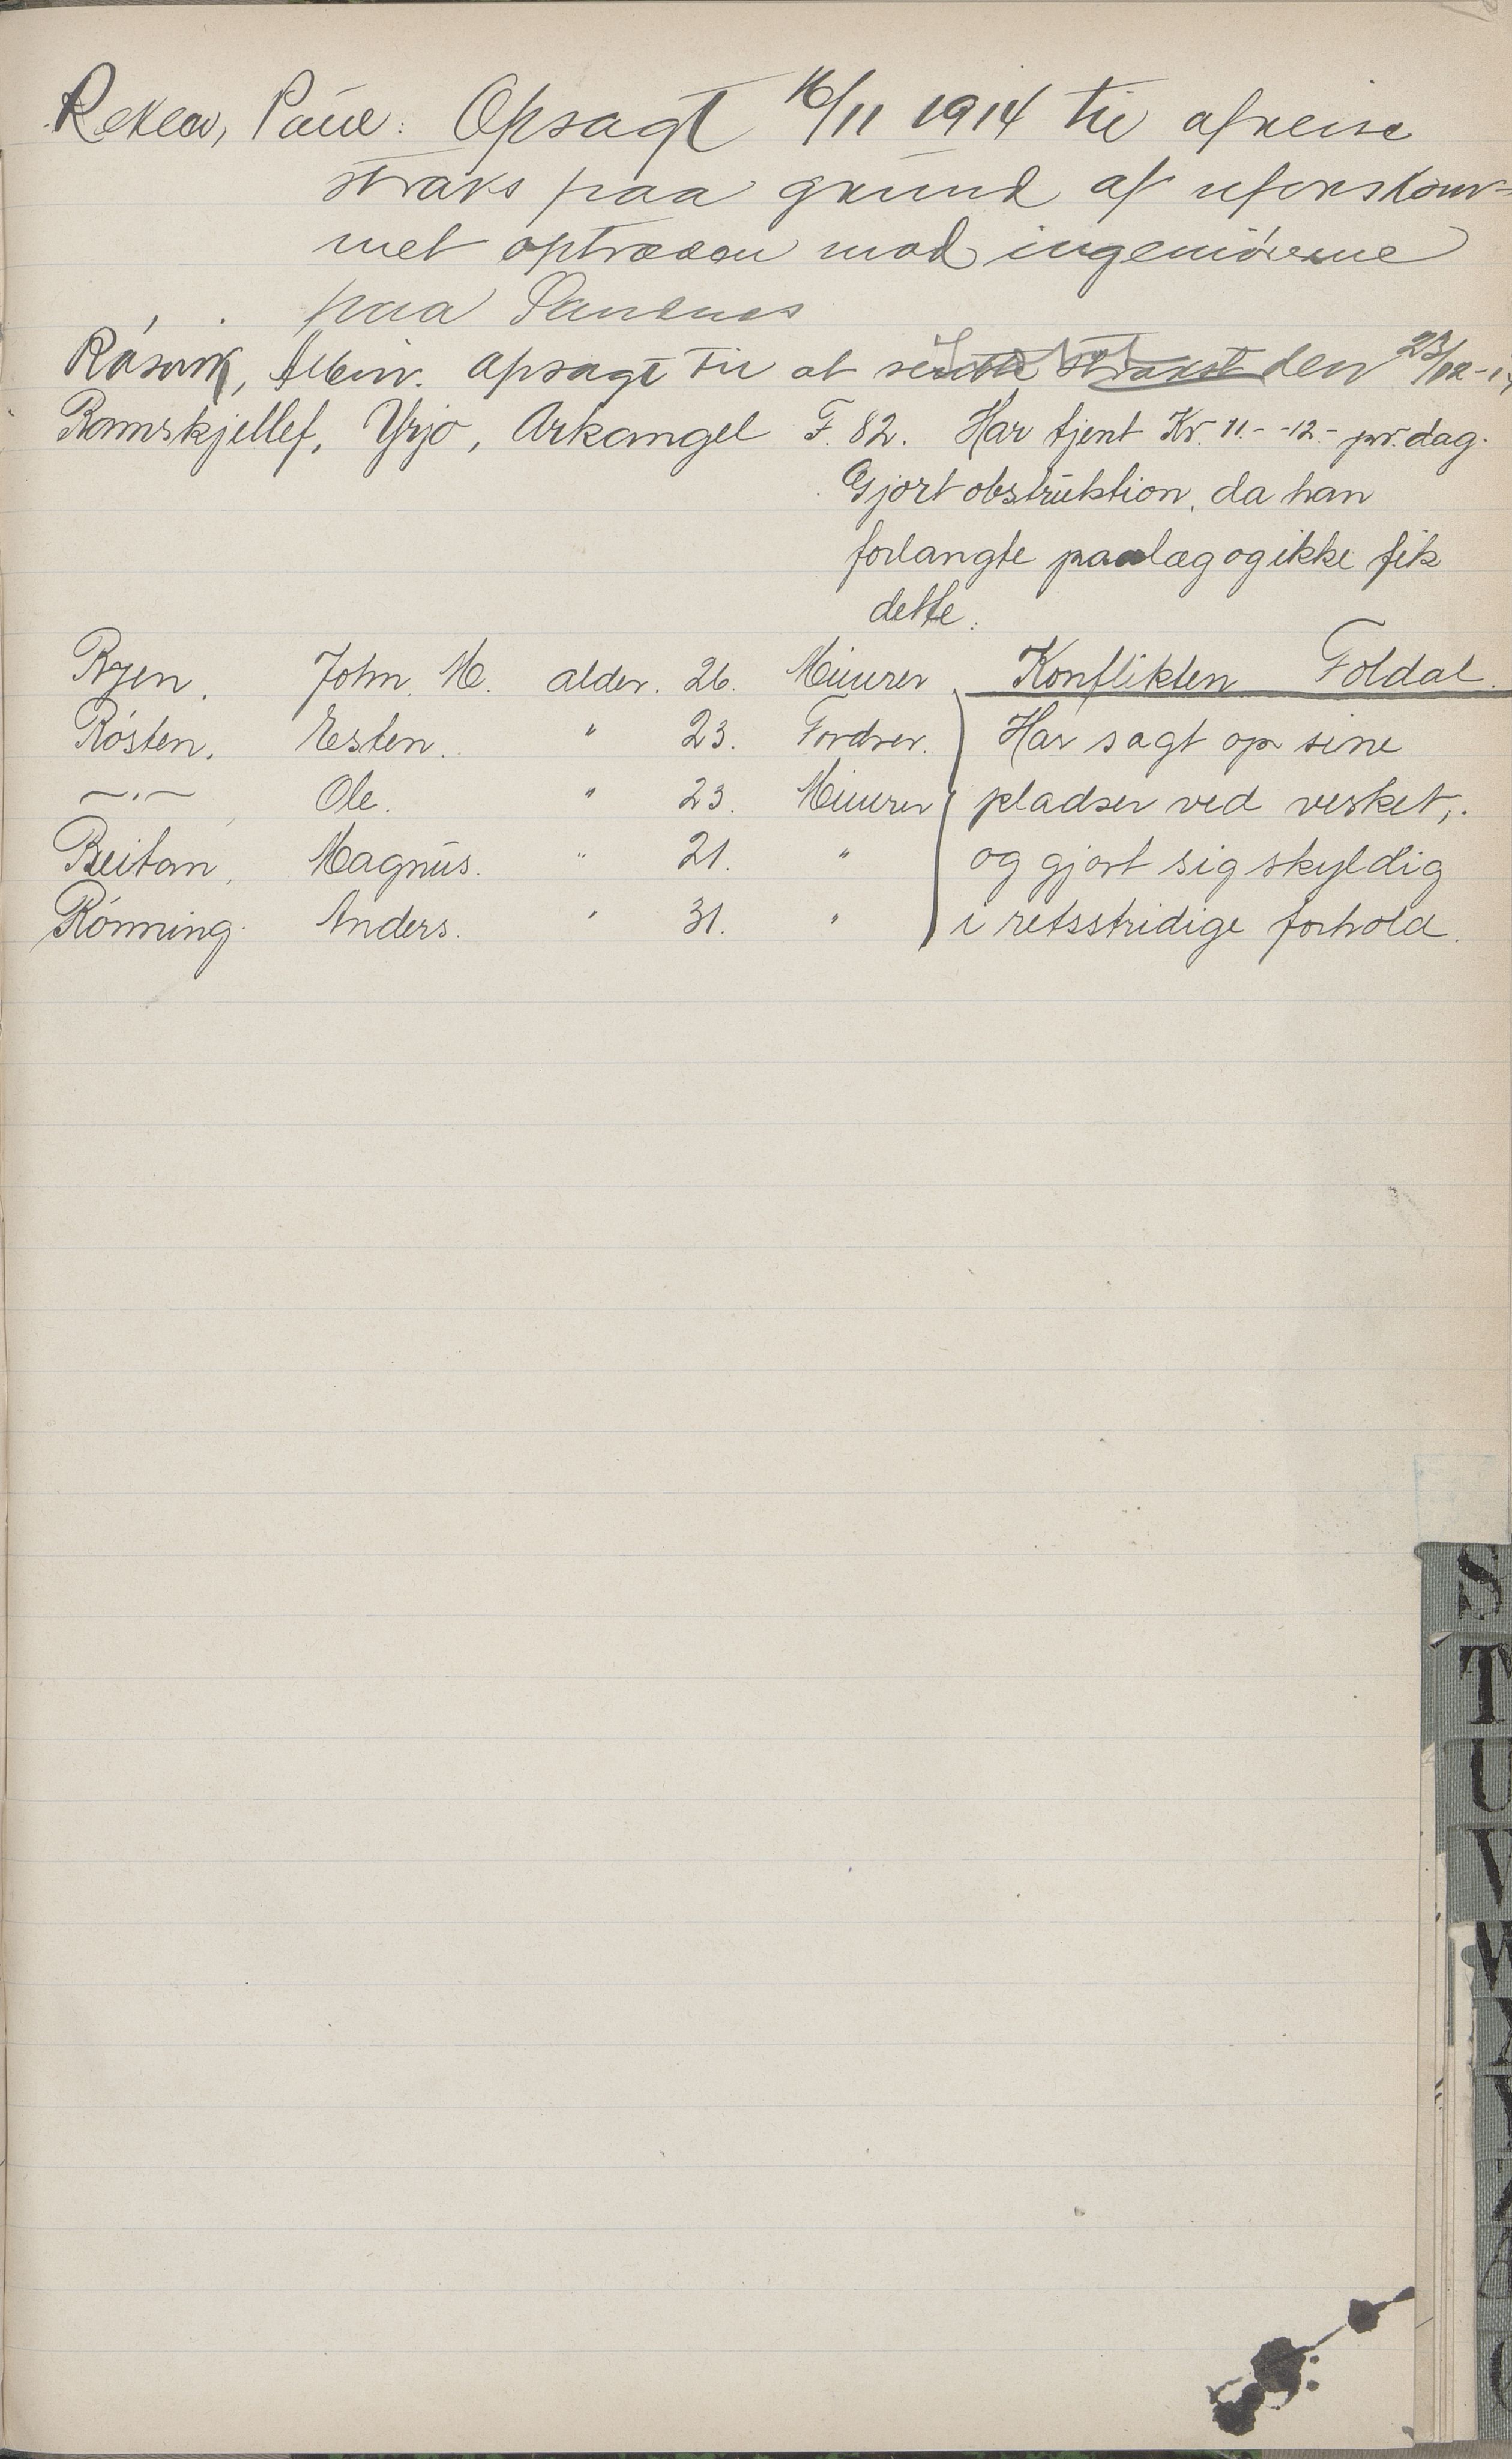 Reklev, Paul: Opsagt 16/11 1914 til afreise
straks paa grund af uforskam-
met optræden mod ingeniørerne
paa Sandnes
Råsvik, Albin. Opsagt til at den 23/12-14
Ramskjellef, Yrjo, Arkangel F. 82. Har tjent Kr. 11.- -12.- pr. dag.
Gjort obstruktion, da han
forlangte paalæg og ikke fik
dette.
Ryen, John. M. alder. 26. Minerer Konflikten Foldal.
Røsten, Esten. " 23. Fordrer. Har sagt op sine
—"— Ole. " 23. Minerer pladser ved verket,
Reitan, Magnus. " 21. " og gjort sig skyldig
Rønning. Anders. " 31. " i retsstridige forhold.
S
T
U
V
W
X
Y